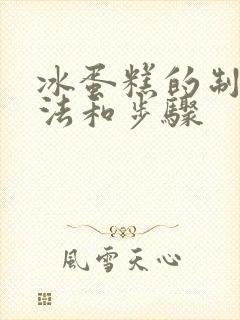 冰蛋糕的制
法和步骤
風雪天心